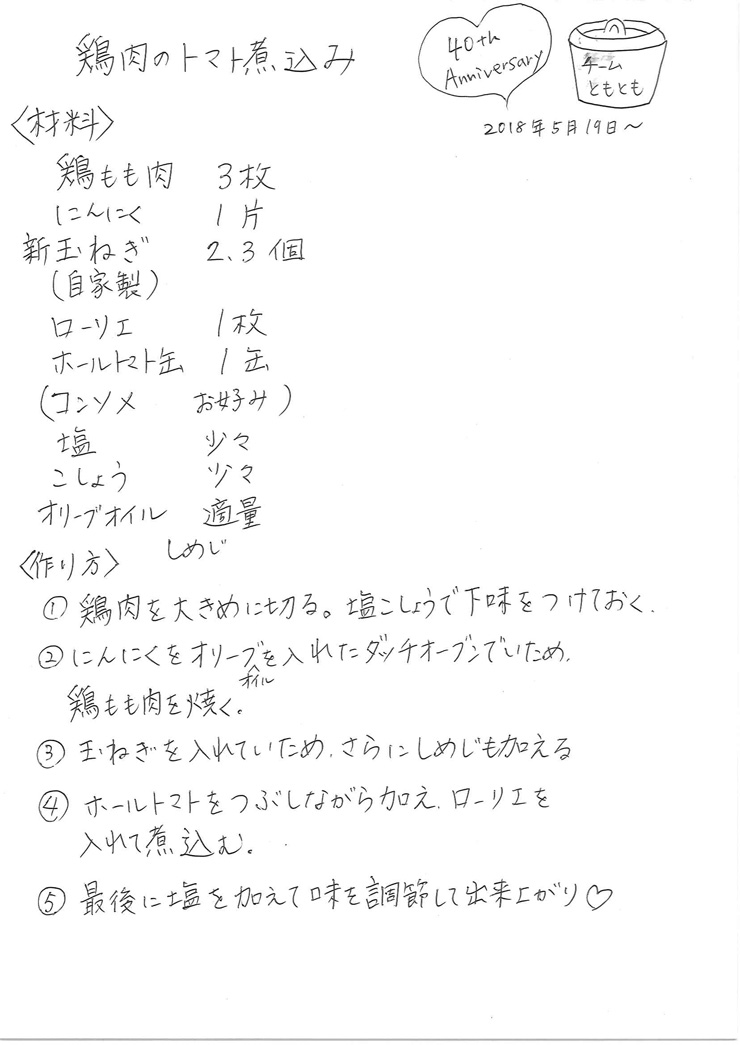 鶏肉のトマト煮込み
40th
Anniversary
チーム
ともとも
2018年5月19日～
〈材料〉
鶏もも肉 3枚
にんにく 1片
新玉ねぎ 2、3個
(自家製)
ローリエ 1枚
ホールトマト缶 1缶
(コンソメ お好み)
塩 少々
こしょう 少々
オリーブオイル 適量
しめじ
〈作り方〉
① 鶏肉を大きめに切る。塩こしょうで下味をつけておく.
② にんにくをオリーブオイルを入れたダッチオーブンでいため.
鶏もも肉を焼く。
③ 玉ねぎを入れていため.さらにしめじも加える
④ ホールトマトをつぶしながら加え.ローリエを
入れて煮込む。
⑤ 最後に塩を加えて味を調節して出来上がり♡